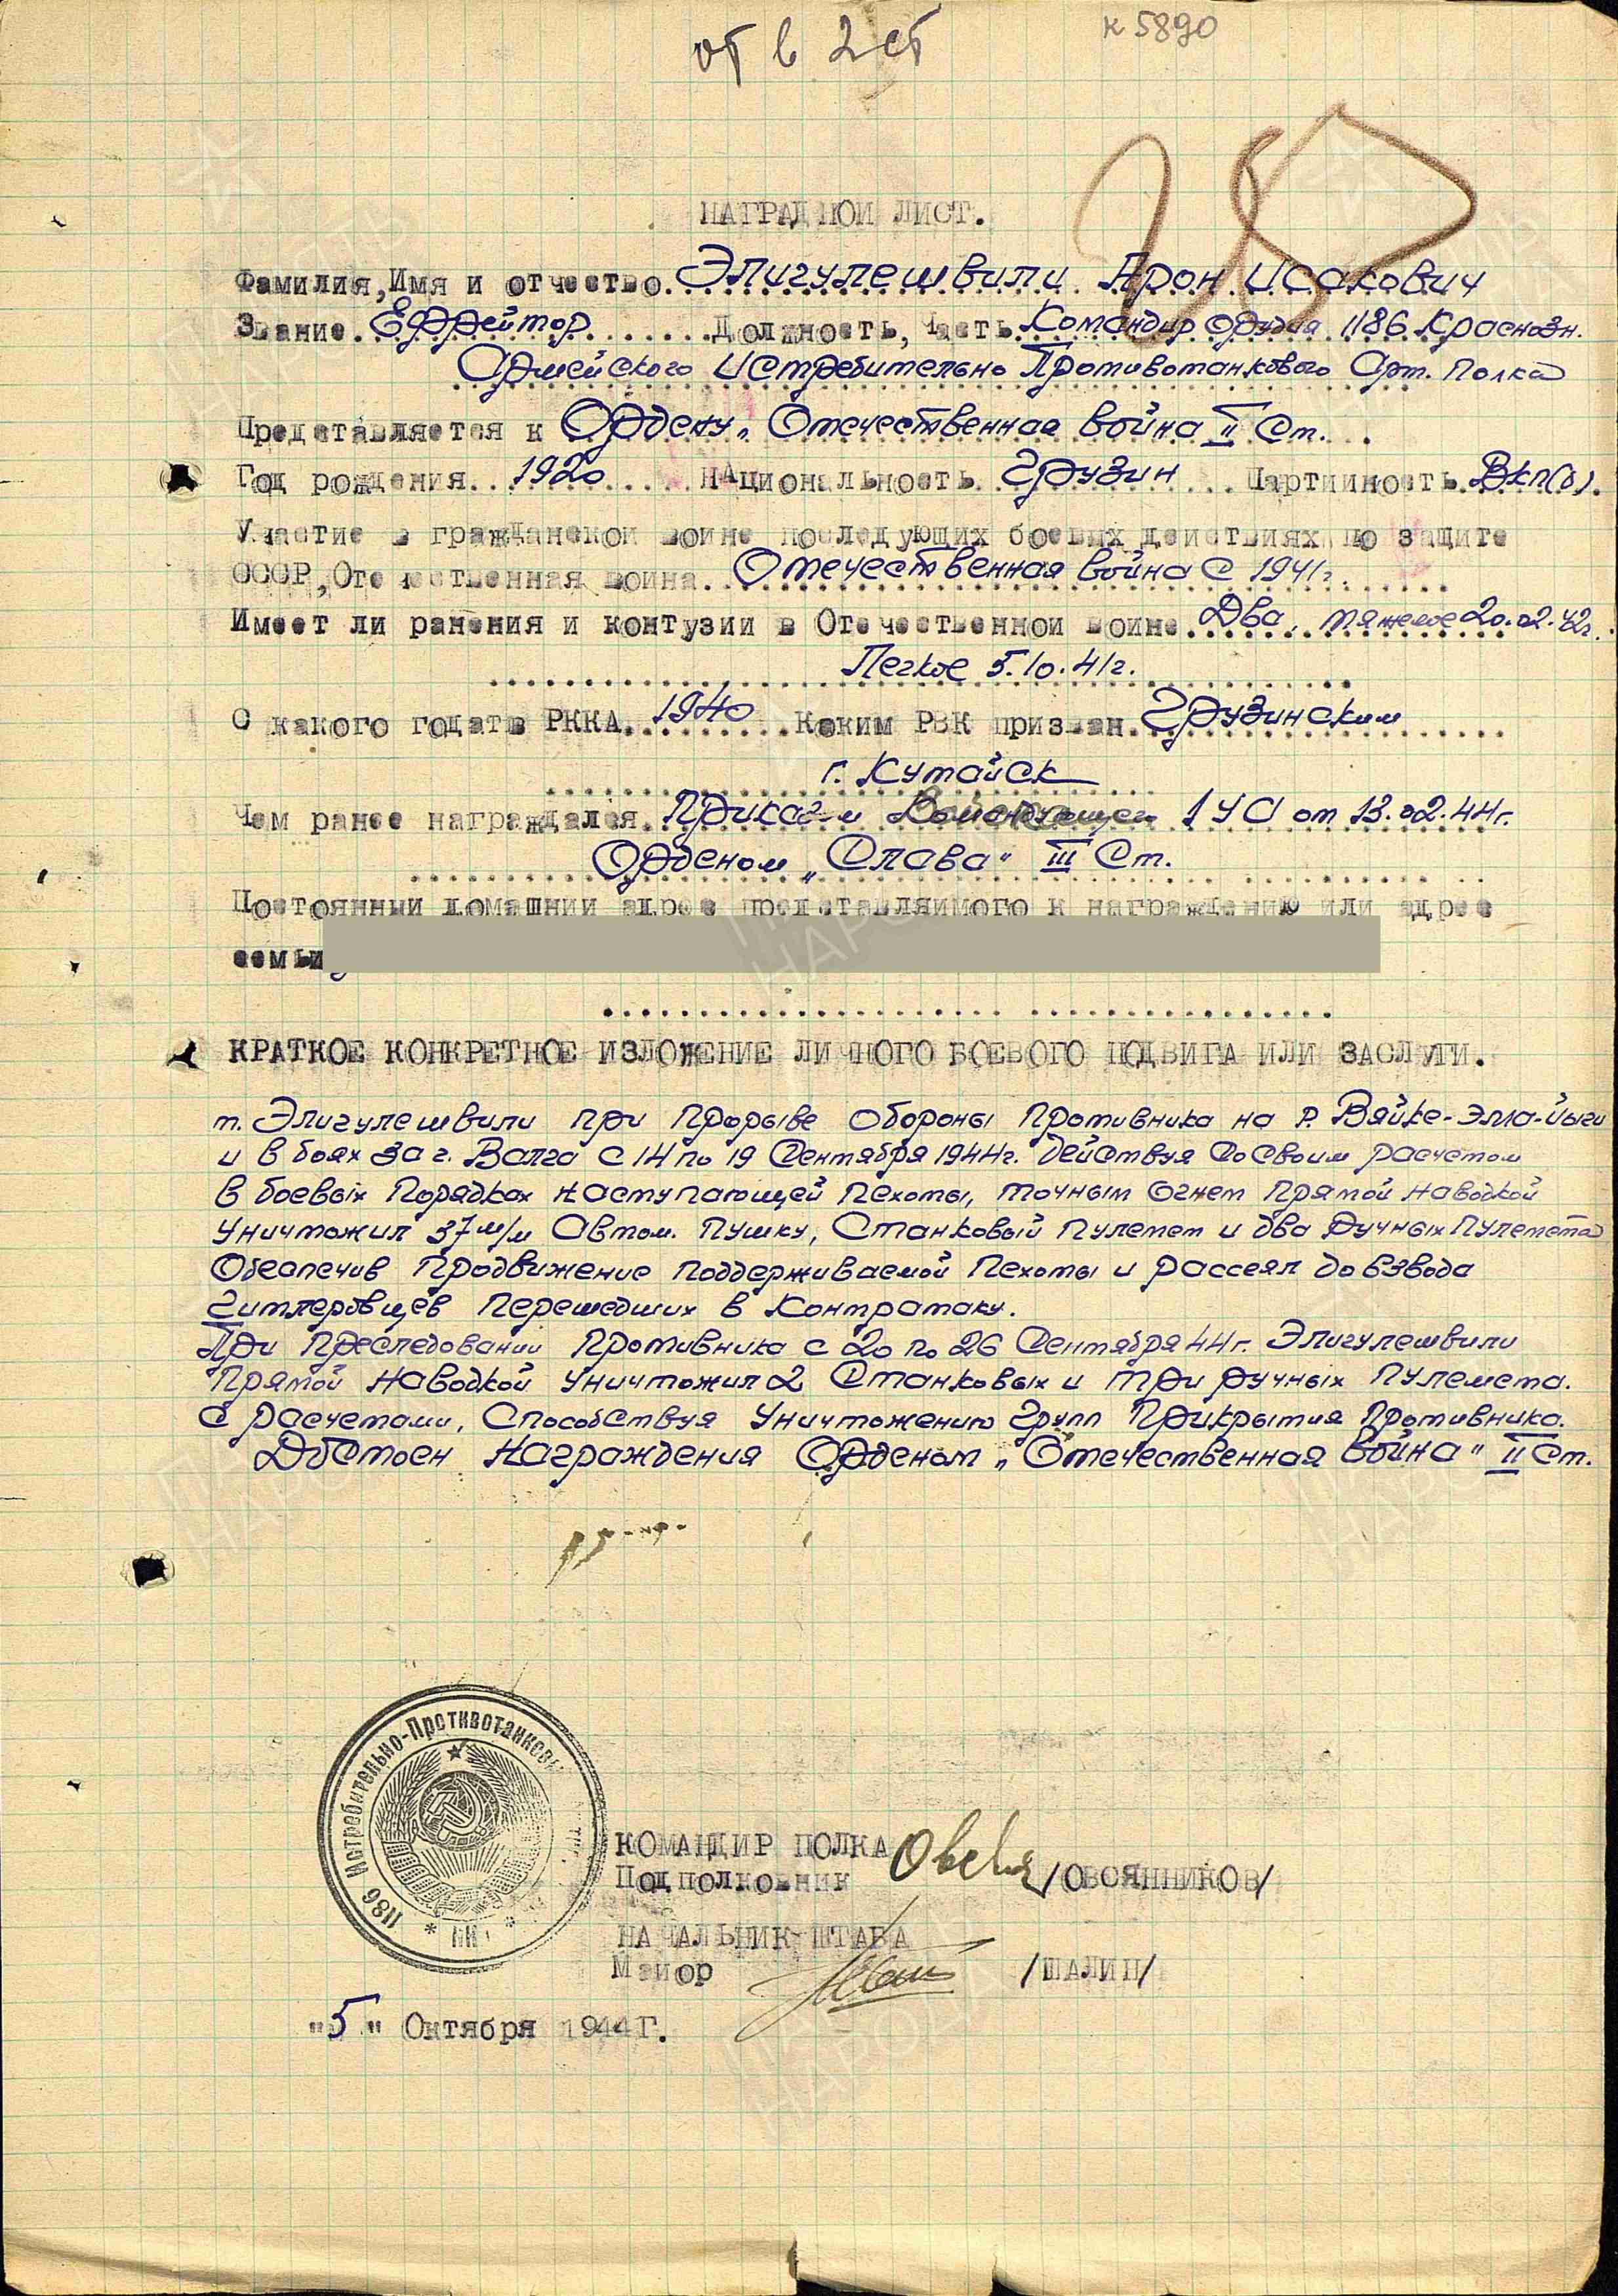 от в 2 ст
к 5890
НАГРАДНОЙ ЛИСТ.
Фамилия, Имя и отчество. Элигулешвили Арон Исакович
Звание. Ефрейтор Должность, Часть. Командир орудия 1186 Краснозн.
Армейского Истребительно Противотанкового Арт. Полка
Представляется к Ордену „Отечественная война II Ст.
Год рождения. 1920 Национальность Грузин Партийность. ВКП(б).
Участие в гражданской войне последующих боевых действиях по защите
СССР, Отечественная война. Отечественная война с 1941г.
Имеет ли ранения и контузии в Отечественной войне. Два, тяжелое 20.02.42г.
Легкое 5.10.41г.
С какого года в РККА. 1940 Каким РВК призван. Грузинским
г. Кутайск
Чем ранее награждался. Приказом 1 УА от 13.02.44г.
Орденом „Слава" III Ст.
Постоянный домашний адрес представляимого к награждению или адрес
семьи
КРАТКОЕ КОНКРЕТНОЕ ИЗЛОЖЕНИЕ ЛИЧНОГО БОЕВОГО ПОДВИГА ИЛИ ЗАСЛУГИ.
т. Элигулешвили при Прорыве Обороны Противника на р. Вяйке-Эма-Йыги
и в боях за г. Валга с 14 по 19 Сентября 1944г. действуя со своим расчетом
в боевых Порядках наступающей Пехоты, точным огнем Прямой наводкой
уничтожил 37 м/м Автом. Пушку, Станковый Пулемет и два Ручных Пулемета
Обеспечив Продвижение поддерживаемой Пехоты и рассеял до взвода
Гитлеровцев Перешедших в Контратаку.
При Преследовании Противника с 20 по 26 Сентября 44г. Элигулешвили
Прямой наводкой уничтожил 2 Станковых и три ручных Пулемета.
с расчетами, Способствуя Уничтожению Групп Прикрытия Противника.
Достоен Награждения Орденом „Отечественная Война" II Ст.
1186 Истребительно-Противотанковый
КОМАНДИР ПОЛКА
Подполковник /ОВСЯННИКОВ/
НАЧАЛЬНИК ШТАБА
Майор /ШАЛИН/
"5" Октября 1944Г.
ПАМЯТЬ
НАРОДА